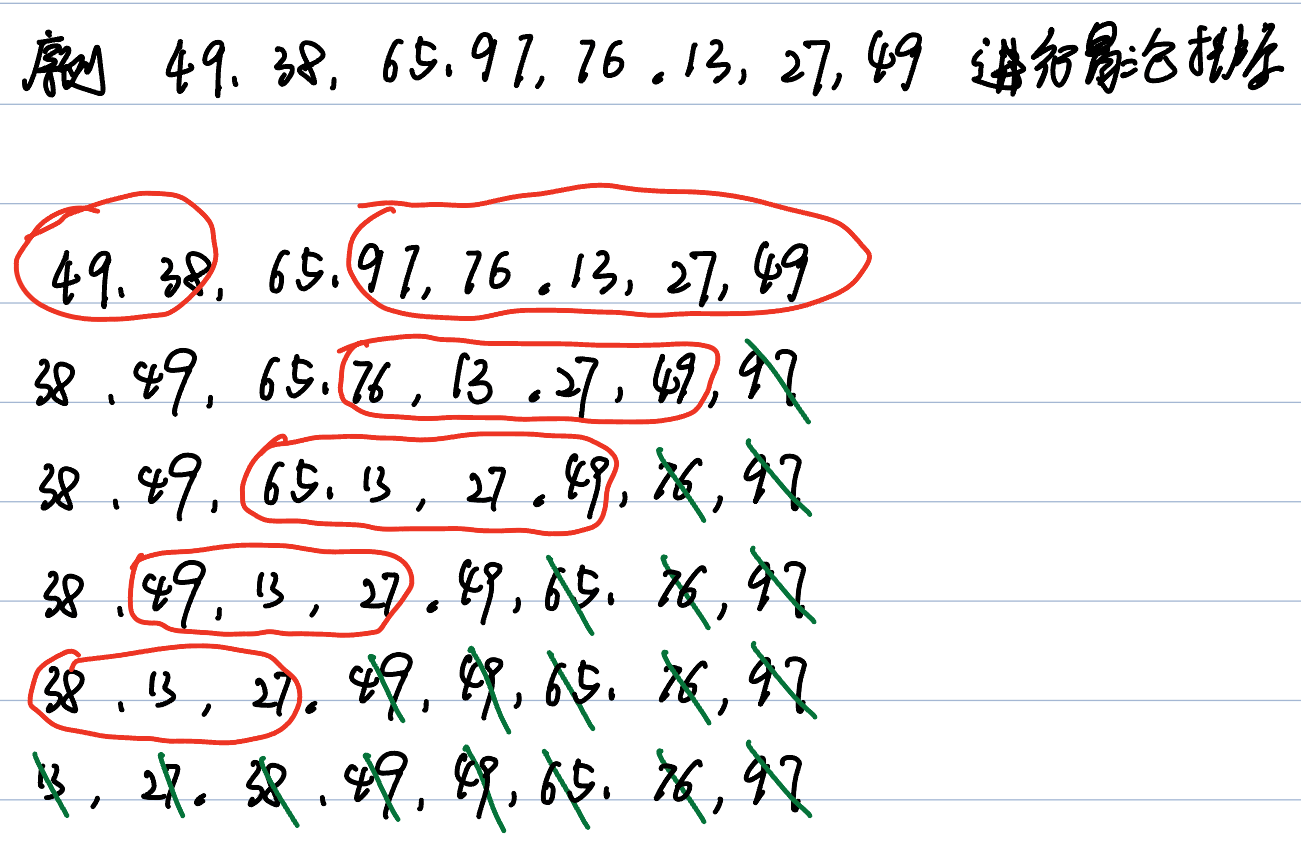 序列 49. 38, 65. 97, 76. 13, 27, 49 进行冒泡排序
49. 38, 65. 97, 76. 13, 27, 49
38. 49, 65. 76, 13. 27, 49, 97
38. 49, 65. 13, 27. 49, 76, 97
38. 49, 13, 27. 49, 65. 76, 97
38. 13, 27. 49, 49, 65. 76, 97
13, 27. 38. 49, 49, 65. 76, 97